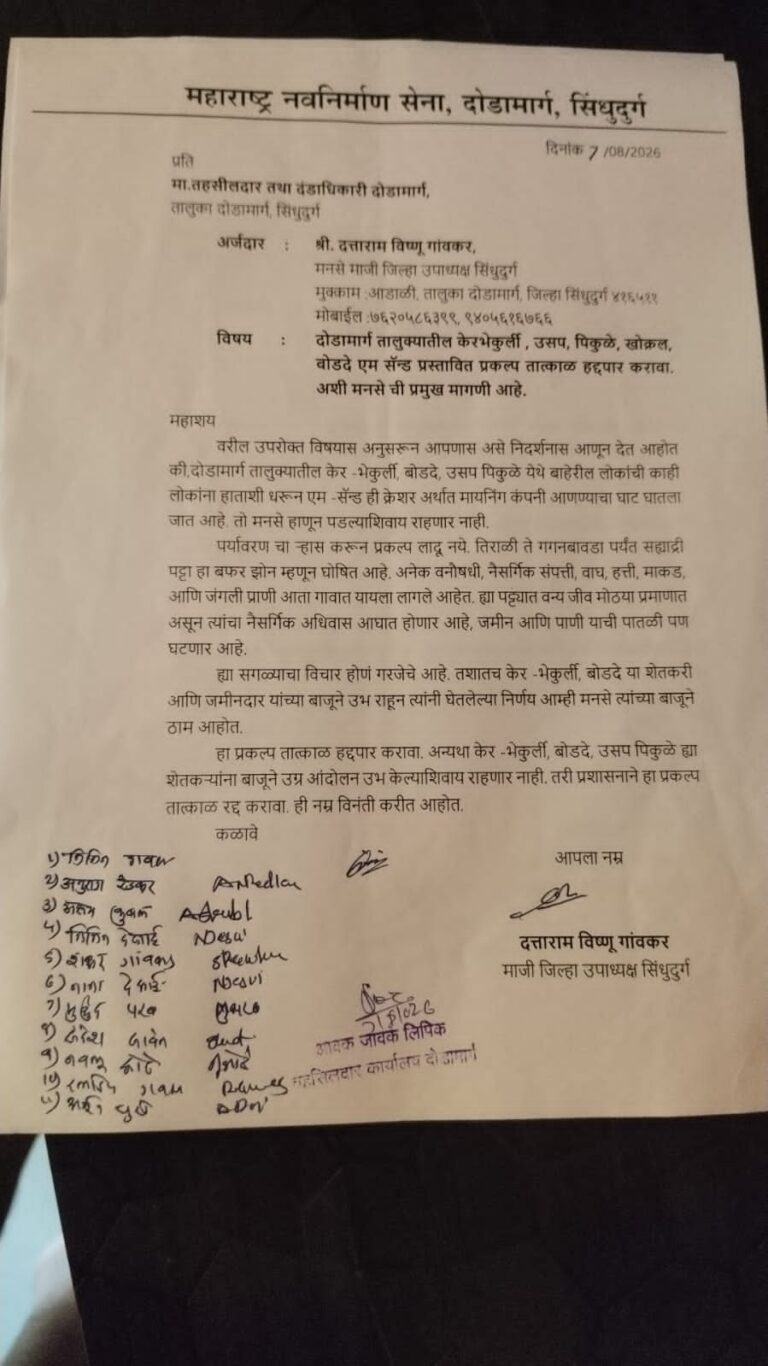 महाराष्ट्र नवनिर्माण सेना, दोडामार्ग, सिंधुदुर्ग
दिनांक 7 /08/2026
प्रति
मा.तहसीलदार तथा दंडाधिकारी दोडामार्ग,
तालुका दोडामार्ग, सिंधुदुर्ग
अर्जदार : श्री. दत्ताराम विष्णू गांवकर,
मनसे माजी जिल्हा उपाध्यक्ष सिंधुदुर्ग
मुक्काम :आडाळी, तालुका दोडामार्ग, जिल्हा सिंधुदुर्ग ४१६५११
मोबाईल :७६२०५८६३९९, ९४०५६१६७६६
विषय : दोडामार्ग तालुक्यातील केरभेकुर्ली , उसप, पिकुळे, खोक्रल,
बोडदे एम सॅन्ड प्रस्तावित प्रकल्प तात्काळ हद्दपार करावा.
अशी मनसे ची प्रमुख मागणी आहे.
महाशय
वरील उपरोक्त विषयास अनुसरून आपणास असे निदर्शनास आणून देत आहोत
की,दोडामार्ग तालुक्यातील केर -भेकुर्ली, बोडदे, उसप पिकुळे येथे बाहेरील लोकांची काही
लोकांना हाताशी धरून एम -सॅन्ड ही क्रेशर अर्थात मायनिंग कंपनी आणण्याचा घाट घातला
जात आहे. तो मनसे हाणून पडल्याशिवाय राहणार नाही.
पर्यावरण चा ऱ्हास करून प्रकल्प लादू नये. तिराळी ते गगनबावडा पर्यंत सह्याद्री
पट्टा हा बफर झोन म्हणून घोषित आहे. अनेक वनौषधी, नैसर्गिक संपत्ती, वाघ, हत्ती, माकड,
आणि जंगली प्राणी आता गावात यायला लागले आहेत. ह्या पट्ट्यात वन्य जीव मोठया प्रमाणात
असून त्यांचा नैसर्गिक अधिवास आघात होणार आहे, जमीन आणि पाणी याची पातळी पण
घटणार आहे.
ह्या सगळ्याचा विचार होणं गरजेचे आहे. तशातच केर -भेकुर्ली, बोडदे या शेतकरी
आणि जमीनदार यांच्या बाजूने उभ राहून त्यांनी घेतलेल्या निर्णय आम्ही मनसे त्यांच्या बाजूने
ठाम आहोत.
हा प्रकल्प तात्काळ हद्दपार करावा. अन्यथा केर -भेकुर्ली, बोडदे, उसप पिकुळे ह्या
शेतकऱ्यांना बाजूने उग्र आंदोलन उभ केल्याशिवाय राहणार नाही. तरी प्रशासनाने हा प्रकल्प
तात्काळ रद्द करावा. ही नम्र विनंती करीत आहोत.
कळावे
आपला नम्र
दत्ताराम विष्णू गांवकर
माजी जिल्हा उपाध्यक्ष सिंधुदुर्ग
1)
2)
3)
4) देसाई NDesai
5) शंकर गांवकर
6) नाना देसाई
7)
8)
9)
10)
11)
आवक जावक लिपिक
तहसिलदार कार्यालय दोडामार्ग